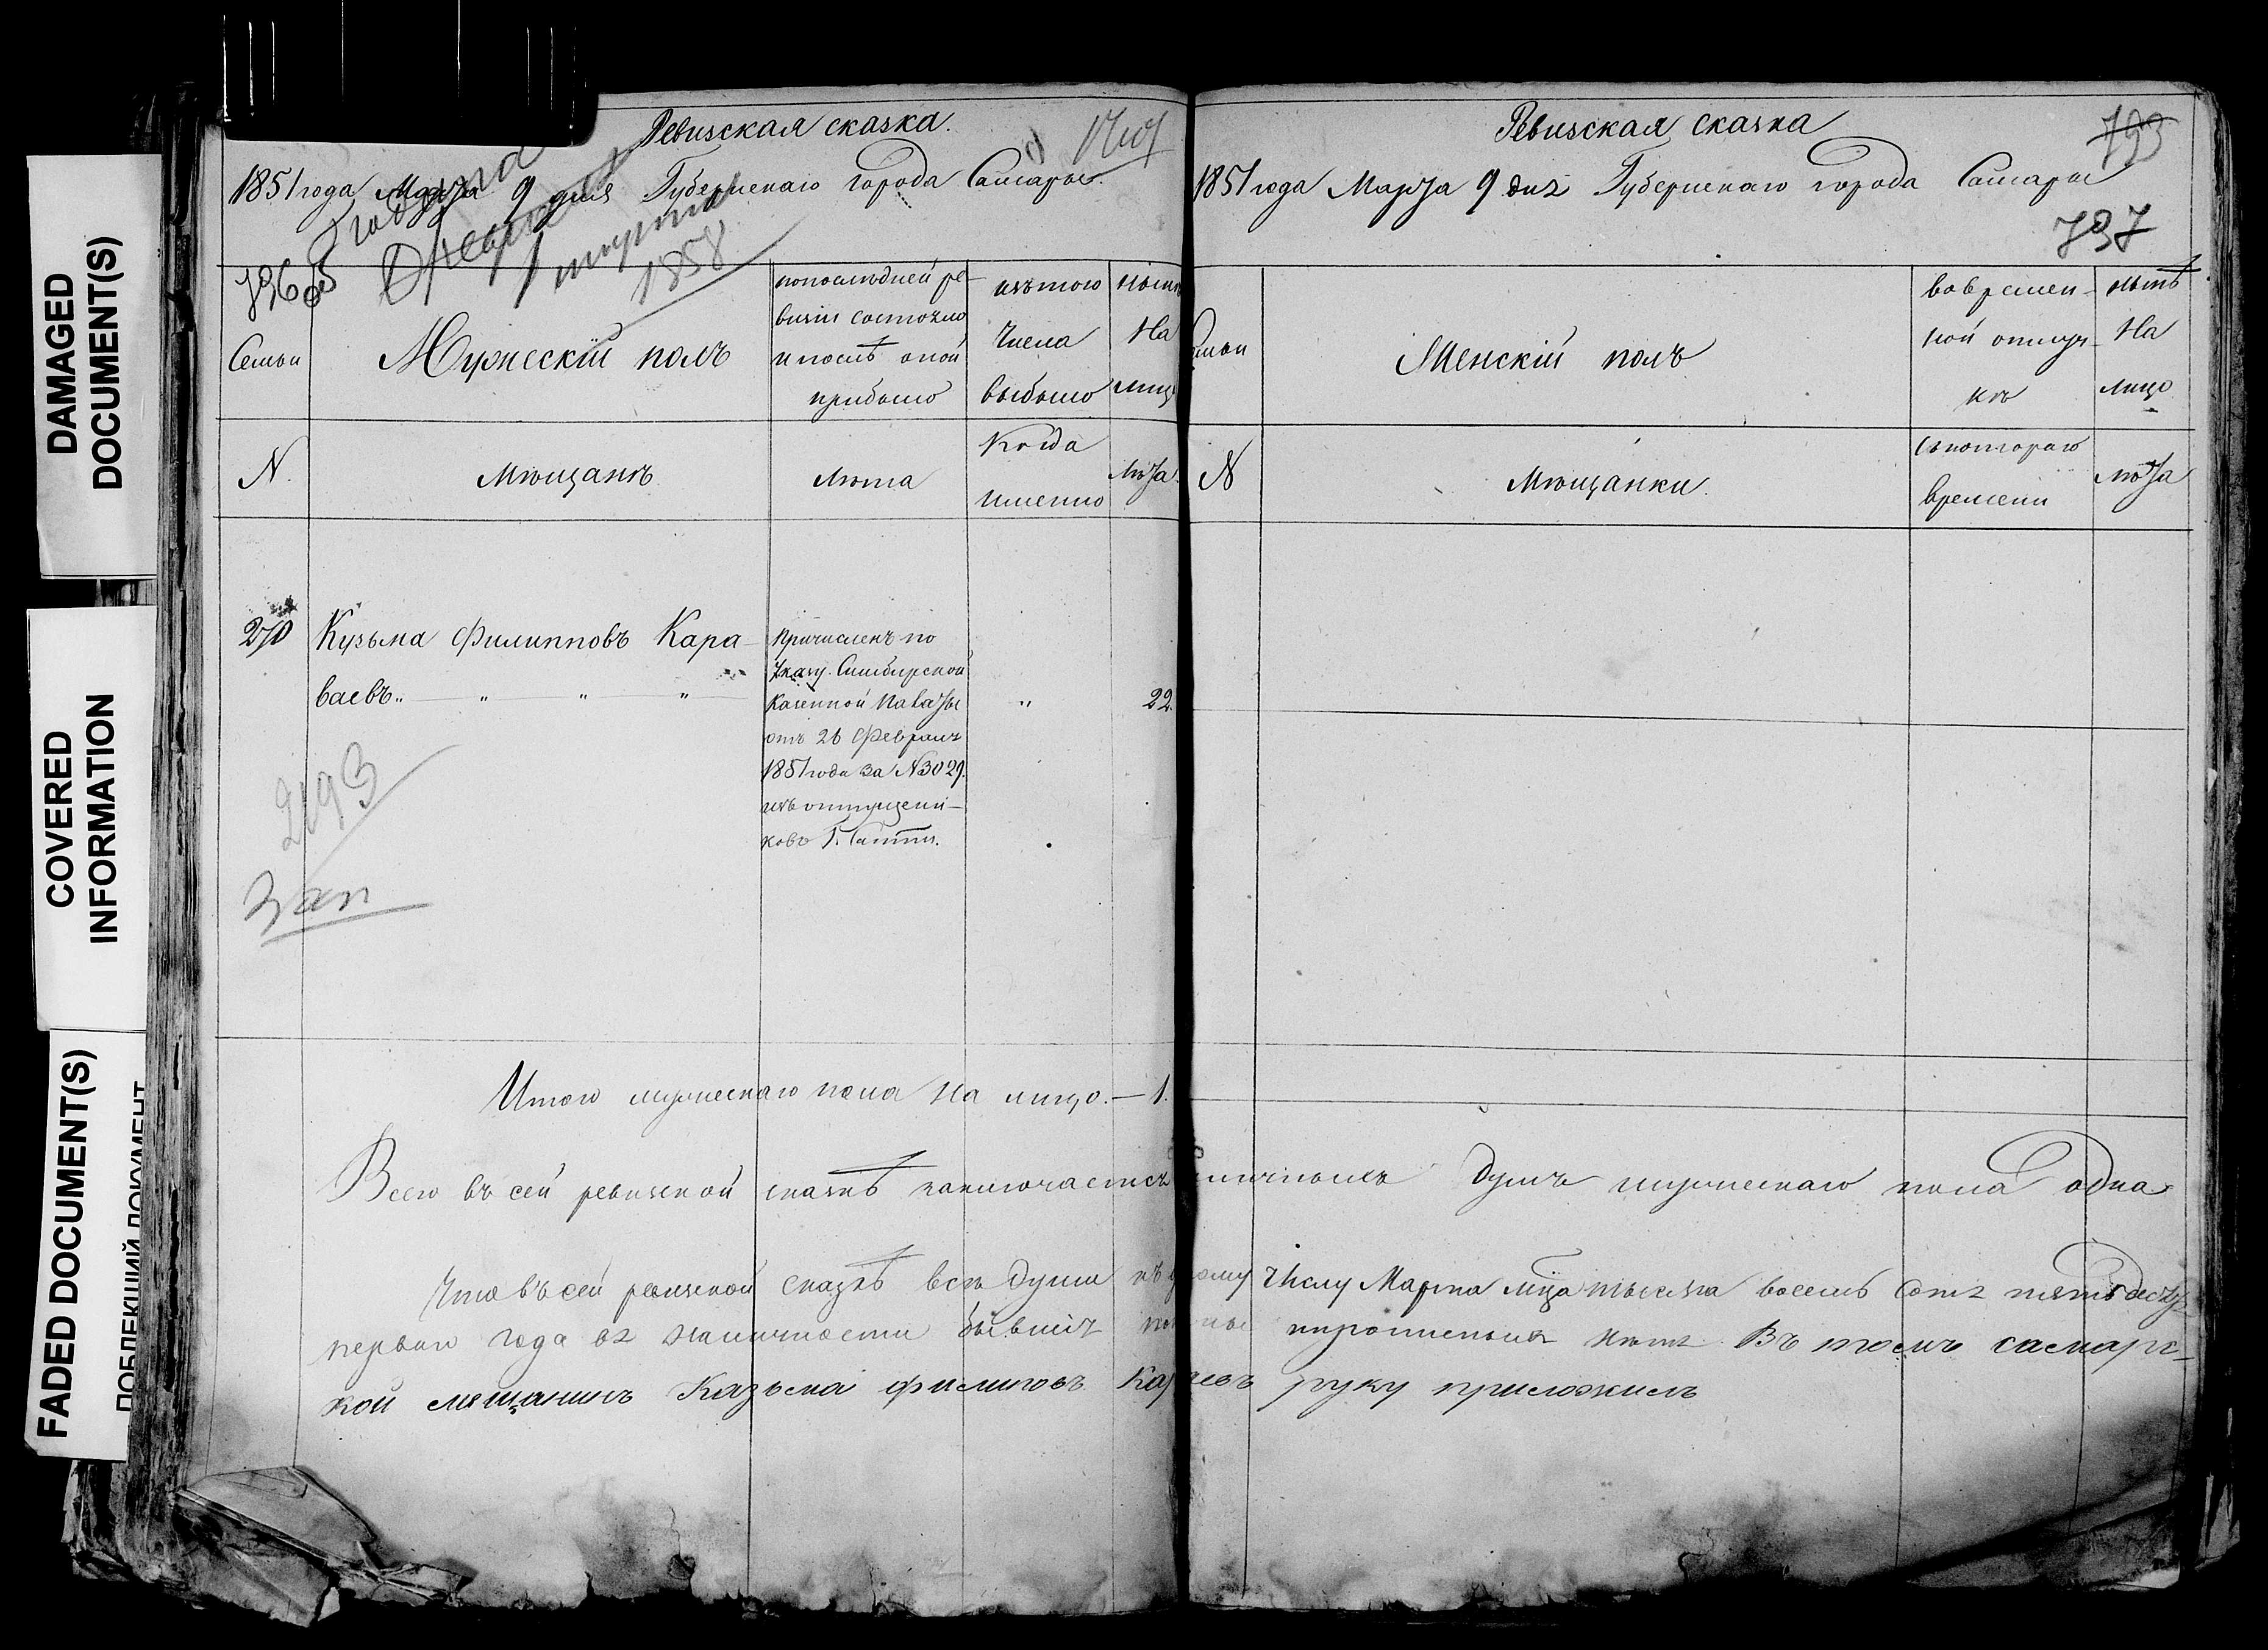 DAMAGED
DOCUMENT(S)
COVERED
INFORMATION
FADED DOCUMENT(S)
Ревизская сказка.
1851 года Марта 9 дня Губернскаго города Самары.
1858
796 об
Семьи
Мужескій полъ
попослѣдней ре-
визіи состояло
и послѣ оной
прибыло
изътого
числа
выбыло
нынѣ
На
лицо
N.
Мѣщанъ
лѣта
Когда
именно
лѣта.
270
Кузьма Филипповъ Кара-
ваевъ „ „ „ „
Причисленъ по
Указу Симбирской
Казенной Палаты
отъ 26 Февраля
1851 года за N 3029.
изъ отпущени-
ковъ Г.
„
22.
2193
зап
Итого мужескаго пола на лицо. — 1.
Ревизская сказка
1851 года Марта 9 дня Губернскаго города Самары
793
797
Семьи
Женскій полъ
вовремен-
ной отлуч-
къ
нынѣ
На
лицо
N
Мѣщанки.
Скотораго
времени
лѣта
Всего въ сей ревизской сказкѣ заключается наличныхъ душъ мужескаго пола одна
Что въ сей ревизской сказкѣ всѣ души къ числу Марта мца тысяча восемь сотъ пятьдесятъ
перваго года въ наличности бывшія прописныхъ нѣтъ Въ томъ самарс-
кой мещанинъ Казьма филиповъ руку приложилъ